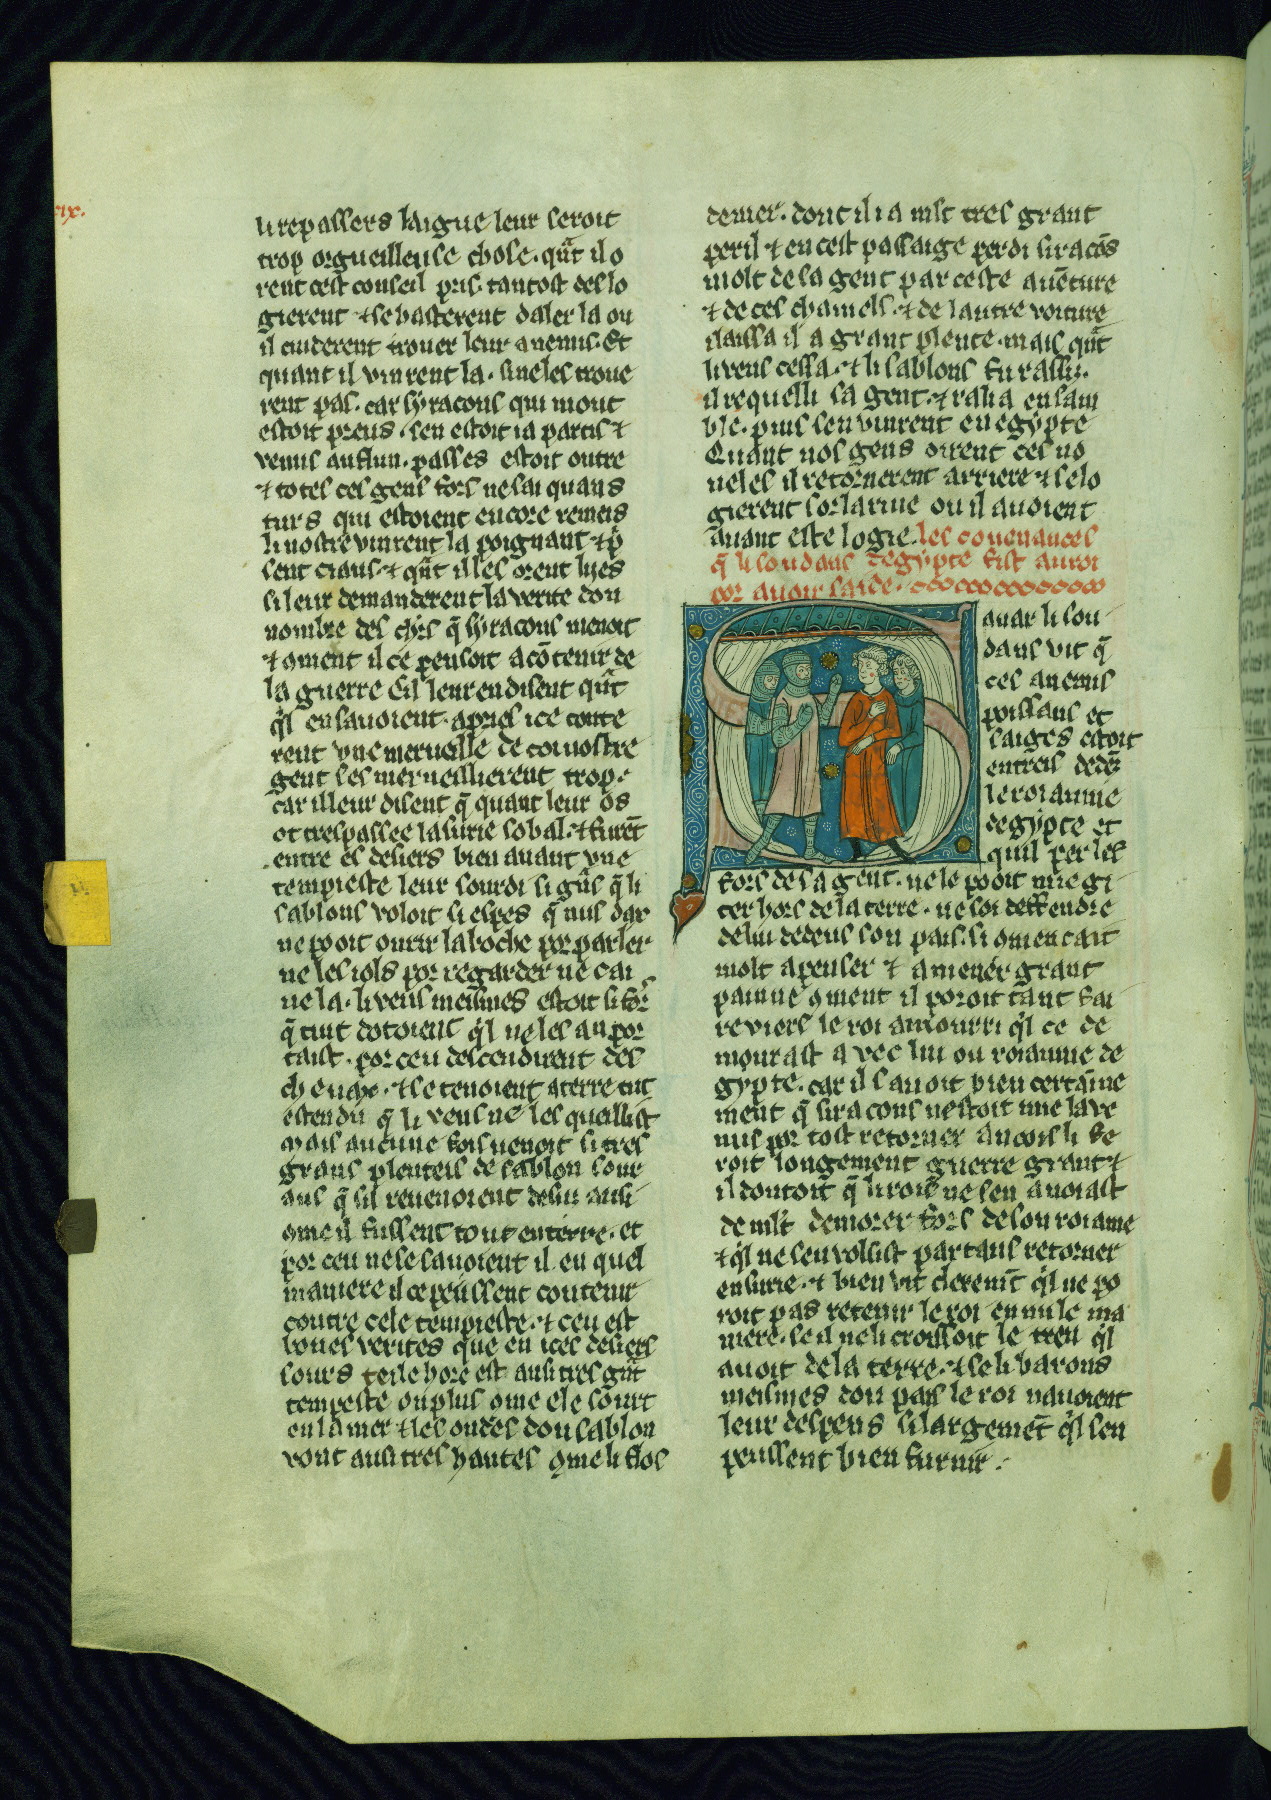 xix.
li repassers laigue leur seroit
trop orgueilleuse chose. qu̾t il o
rent cest conseil pris. tantost deslo
gierent ⁊ se hasterent daler la ou
il cuiderent trouer leur anemis. Et
quant il vinrent la. si ne les troue
rent pas. car syracons qui mout
estoit preus. sen estoit ia partis ⁊
venus au flun. passes estoit outre
⁊ totes ces gens fors ne sai quans
turs qui estoient encore remeis
li nostre vinrent la poignant ⁊ p̾
sent ciaus. ⁊ qu̾t il les orent lijes
si leur demanderent la verite dou
nombre des chr̄s q̄ syracons menoit
⁊ ꝯment il ce pensoit a cōtenir de
la guerre Cil leur en disent qu̾t
q̾l en sauoient. apres ice conte
rent vne merueille de coi nostre
gent ses merueillierent trop.
car il leur disent q̄ quant leur os
ot trespassee la surie sobal. ⁊ furēt
entre es desiers bien auant vne
tempieste leur sourdi si gn̾s q̄ li
sablons voloit si espes q̄ nus dax
ne pooit ourir la boche por parler
ne les iols por regarder ne cai
ne la. li vens meismes estoit si for̾
q̄ tuit dotoient q̾l ne les an por
taist. por ceu descendirent des
cheuax. ⁊ se tenoient a terre tuc
estendu q̄ li vens ne les queillist
Mais aucune fois venoit si tres
grans plenteis de sablon sour
aus q̄ sil reuenoient desus ausi
ꝯme il fussent tout enterre. et
por ceu ne se sauoient il en quel
maniere il ce peussent contenir
contre cele tempieste. ⁊ ceu est
bones verites que en ices desiers
sours teile hore est ausi tres gn̾t
tempeste ou plus ꝯme ele sourt
en la mer ⁊ les ondes dou sablon
vont ausi tres hautes ꝯme li flos
demer. dont il i a mlt tres grant
peril ⁊ en cest passaige perdi siracōs
molt de sa gent par ceste auēture
⁊ de ces chamels. ⁊ de lautre voiture
i laissa il a grant plente. mais qu̾t
li vens cessa. ⁊ li sablons fu rassis.
il requelli sa gent. ⁊ ralia ensam
ble. puis sen vinrent en egypte
Quant nos gens oirent ces no
ueles il retornerent arriere ⁊ se lo
gierent sor la riue ou il auoient
auant este logie. les couenances
q̄ li soudans degypte fist au roi
por auoir saide.
Quar li sou
dans vit q̄
ces anemis
poissans et
saiges estoit
entreis dedēz
le roiaume
degypte et
quil per les
fors de sa gent. ne le pooit mie gi
ter hors de la terre. ne soi deffendre
de lui dedens son pais. si ꝯmencait
molt a penser ⁊ a mener grant
painne ꝯment il poroit tant fai
re viers le roi amourri q̾l ce de
mourast avec lui ou roiaume de
gypte. car il sauoit bien certaīne
ment q̄ siracons nestoit mie la ve
nus por tost retorner ancois li fe
roit longement guerre grant ⁊
il doutoit q̄ li rois ne sen auoiast
de mlt demorer fors de son roiame
⁊ q̾l ne sen vollist par tans retorner
en surie. ⁊ bien vit cleremt̄ q̾l ne po
roit pas retenir le roi en nule ma
niere. se il ne li croissoit le treu q̾l
auoit de la terre. ⁊ se li barons
meismes dou pais le roi nauoient
leur despens si largemēt q̾l sen
peussent bien furnir.